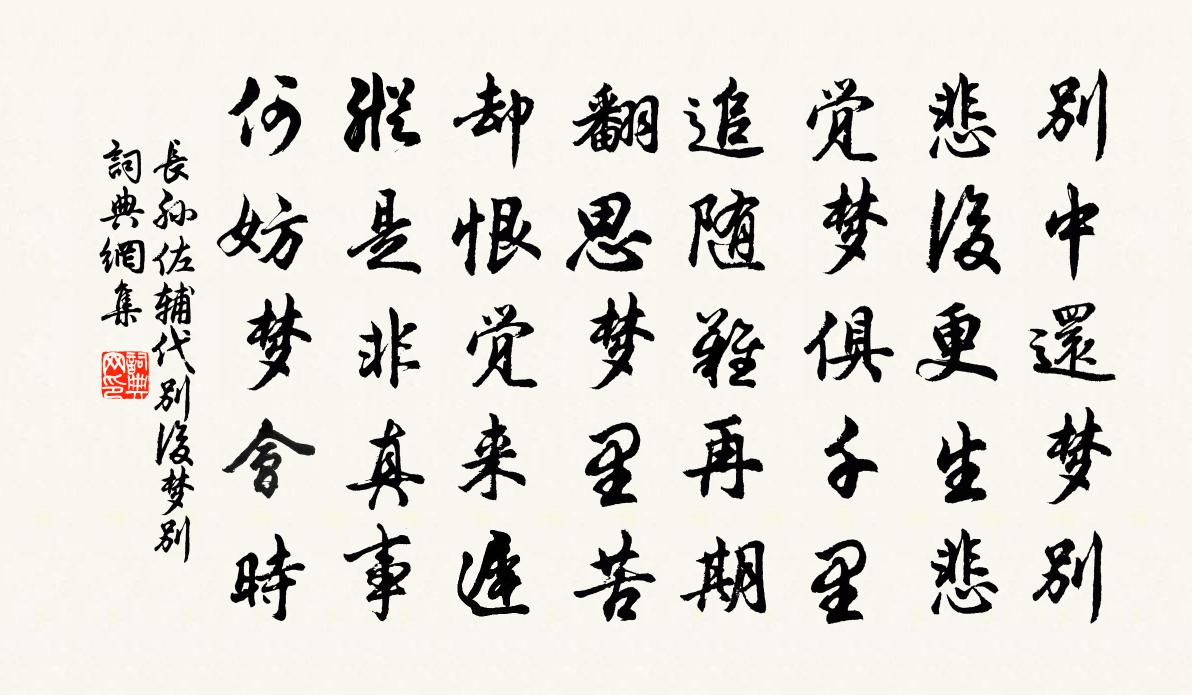 别中還梦别
悲後更生悲
觉梦俱千里
追随難再期
翻思梦里苦
却恨觉来遲
縱是非真事
何妨梦會時
長孙佐辅代别後梦别
詞典網集
詞典
网印